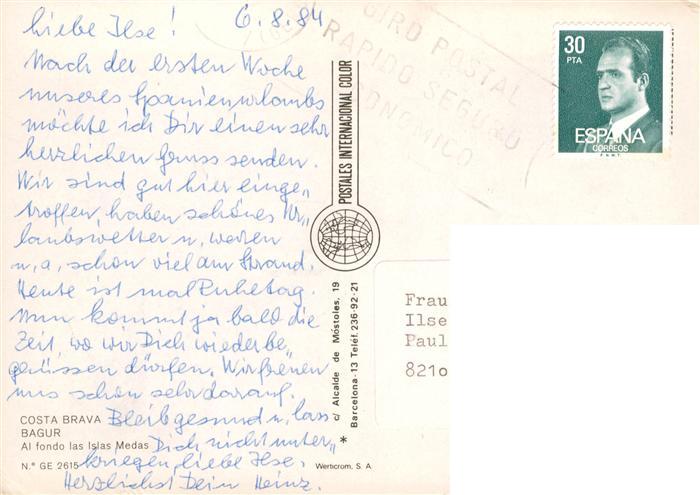 Liebe Ilse! 6.8.84
Nach der ersten Woche
unseres Spanienurlaubs
möchte ich Dir einen sehr
herzlichen Gruss senden.
Wir sind gut hier einge„
troffen, haben schönes Ur„
laubswetter u, waren
u, a, schon viel am Strand.
Heute ist mal Ruhetag.
Nun kommt ja bald die
Zeit, wo wir Dich wieder be„
grüssen dürfen. Wir freuen
uns schon sehr darauf.
Bleib gesund u, lass
Dich nicht unter„
kriegen, liebe Ilse.
Herzlichst Dein Heinz.
COSTA BRAVA
BAGUR
Al fondo las Islas Medas
N.° GE 2615
Werticrom, S. A.
POSTALES INTERNACIONAL COLOR
c/ Alcalde de Móstoles, 19
Barcelona-13 Teléf. 236-92-21
*
GIRO POSTAL
RAPIDO SEGURO
ECONOMICO
30
PTA
ESPAÑA
CORREOS
F.N.M.T.
Frau
Ilse
Paul
8210